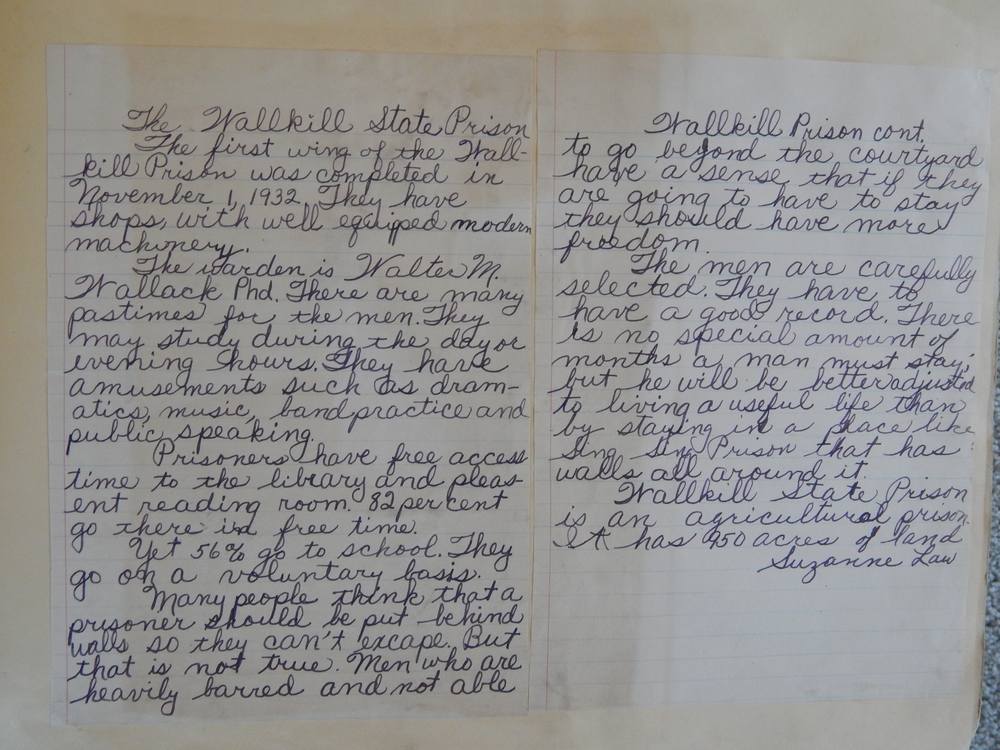 The Wallkill State Prison
The first wing of the Wall-
kill Prison was completed in
November 1, 1932. They have
shops, with well equipped modern
machinery.
The warden is Walter M.
Wallack Phd. There are many
pastimes for the men. They
may study during the day or
evening hours. They have
amusements such as dram-
atics, music, band practice and
public speaking.
Prisoners have free access
time to the library and pleas-
ent reading room. 82 per cent
go there in free time.
Yet 56% go to school. They
go on a voluntary basis.
Many people think that a
prisoner should be put behind
walls so they can't excape. But
that is not true. Men who are
heavily barred and not able
Wallkill Prison cont.
to go beyond the courtyard
have a sense that if they
are going to have to stay
they should have more
freedom.
The men are carefully
selected. They have to
have a good record. There
is no special amount of
months a man must stay,
but he will be better adjusted
to living a useful life than
by staying in a place like
Sing Sing Prison that has
walls all around it.
Wallkill State Prison
is an agricultural prison.
It has 950 acres of land
Suzanne Law